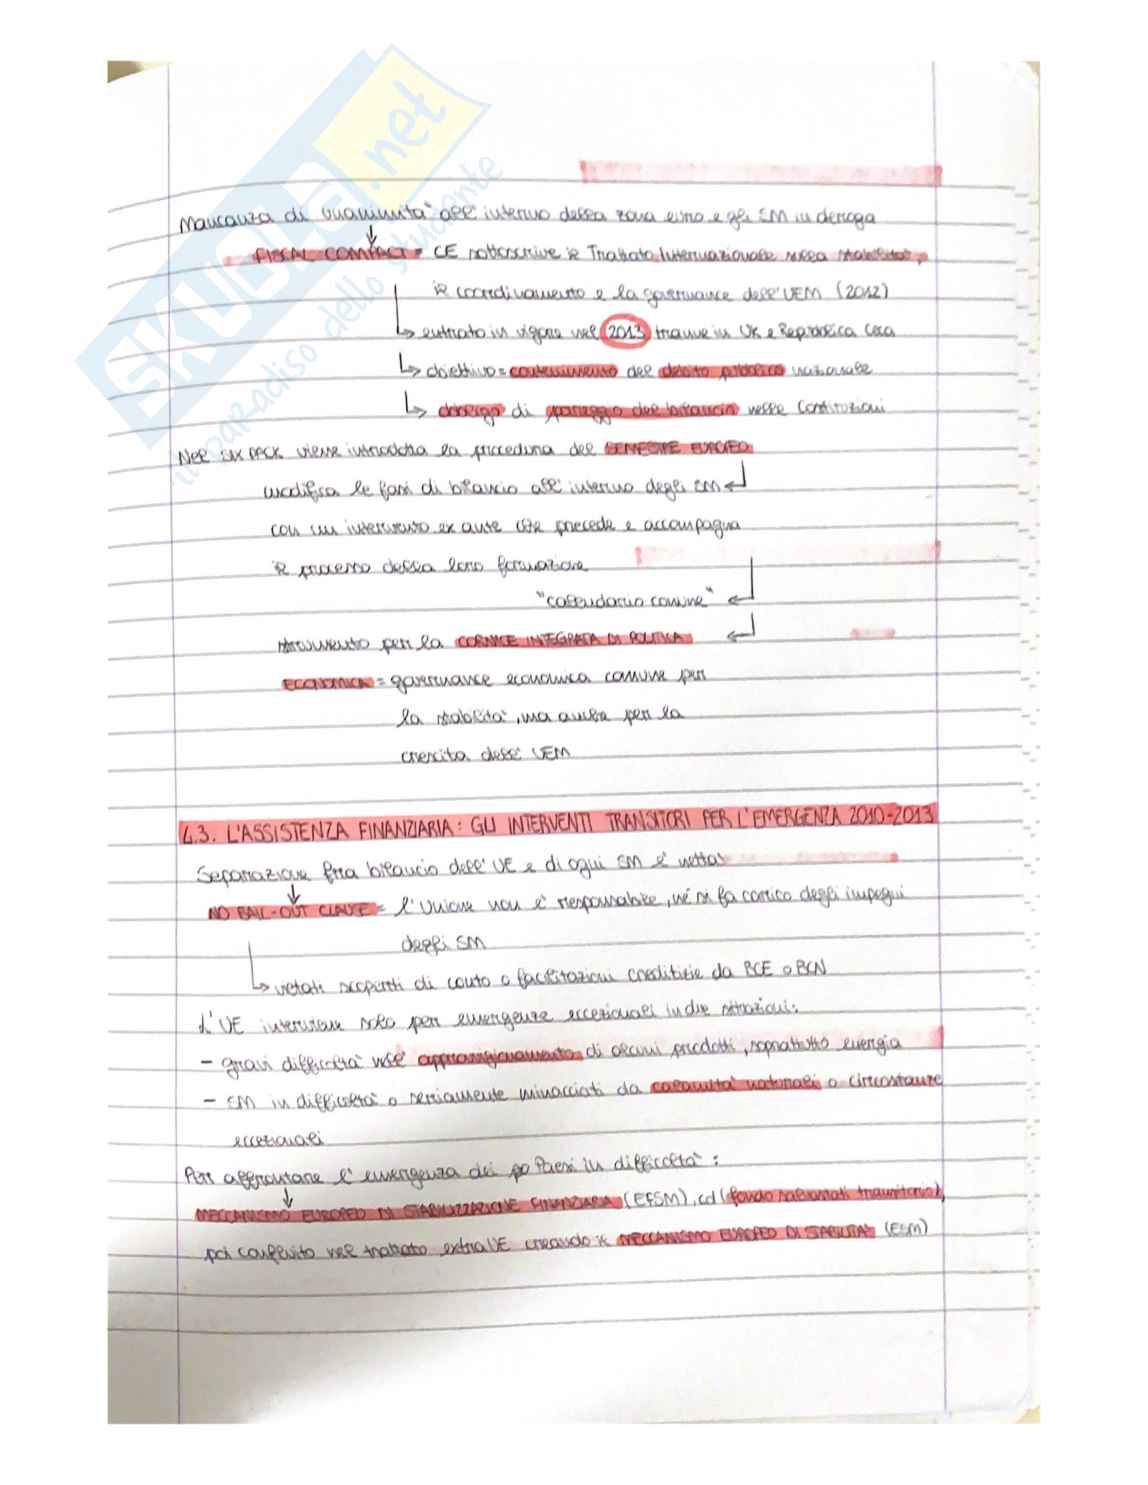 SKUOLA.net
il paradiso dello studente
Mancanza di unanimità all'interno della zona euro e gli SM in deroga
FISCAL COMPACT = CE sottoscrive il Trattato Internazionale sulla stabilità,
il coordinamento e la governance dell'UEM (2012)
entrato in vigore nel 2013 tranne in UK e Repubblica Ceca
obiettivo = contenimento del debito pubblico nazionale
obbligo di pareggio del bilancio nelle Costituzioni
Nel six pack viene introdotta la procedura del SEMESTRE EUROPEO
modifica le fasi di bilancio all'interno degli SM
con un intervento ex ante che precede e accompagna
il processo della loro formazione
"calendario comune"
strumento per la CORNICE INTEGRATA DI POLITICA
ECONOMICA = governance economica comune per
la stabilità, ma anche per la
crescita dell'UEM
4.3. L'ASSISTENZA FINANZIARIA: GLI INTERVENTI TRANSITORI PER L'EMERGENZA 2010-2013
Separazione fra bilancio dell'UE e di ogni SM è netta
NO BAIL-OUT CLAUSE = l'Unione non è responsabile, né si fa carico degli impegni
degli SM
vietati scoperti di conto o facilitazioni creditizie da BCE o BCN
L'UE interviene solo per emergenze eccezionali in due situazioni:
- gravi difficoltà nell'approvvigionamento di alcuni prodotti, soprattutto energia
- SM in difficoltà o seriamente minacciati da calamità naturali o circostanze
eccezionali
Per affrontare l'emergenza dei Paesi in difficoltà:
MECCANISMO EUROPEO DI STABILIZZAZIONE FINANZIARIA (EFSM), cd (fondo salvastati transitorio),
poi confluito nel trattato extraUE creando il MECCANISMO EUROPEO DI STABILITÀ (ESM)